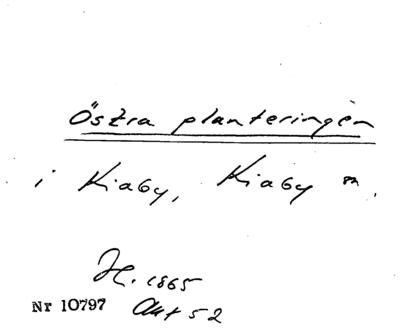 Östra planteringen
i Kiaby, Kiaby sn.
H. 1865
Nr 10797 Akt 52